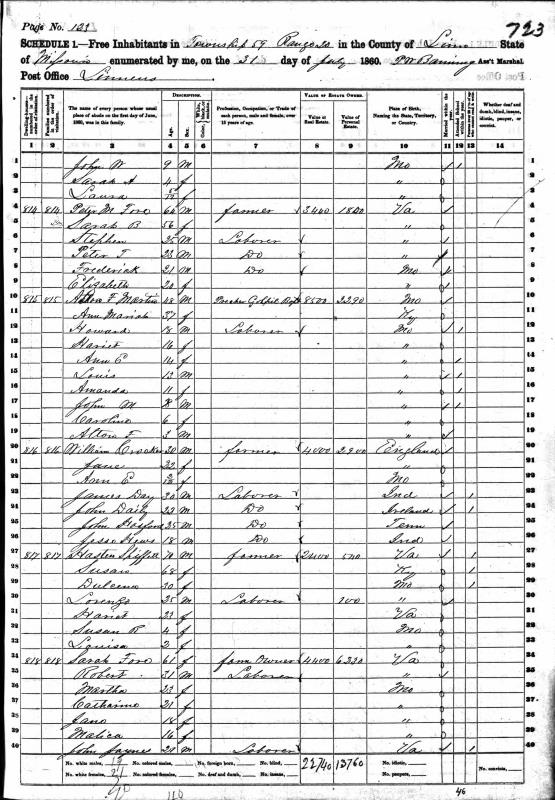 Page No. 121
723
SCHEDULE 1.—Free Inhabitants in Township 59 Range 20 in the County of Linn State
of Missouri enumerated by me, on the 31 day of July 1860. Ass't Marshal.
Post Office Linneus
DESCRIPTION.
VALUE OF ESTATE OWNED.
Dwelling-houses numbered in the order of visitation.
Families numbered in the order of visitation.
The name of every person whose usual place of abode on the first day of June, 1860, was in this family.
Age.
Sex.
Profession, Occupation, or Trade of each person, male and female, over 15 years of age.
Value of Real Estate.
Value of Personal Estate.
Place of Birth, Naming the State, Territory, or Country.
Married within the year.
Attended School within the year.
Whether deaf and dumb, blind, insane, idiotic, pauper, or convict.
1 2 3 4 5 6 7 8 9 10 11 12 13 14
1 John W 9 M Mo
2 Sarah A 4 f "
3 Laura f "
4 814 814 Peter M Fore 64 M farmer 3400 1800 Va
5 Sarah B 56 f "
6 Stephen 25 M Laborer "
7 Peter T 23 M Do "
8 Frederick 21 M Do Mo
9 Elizabeth 20 f "
10 815 815 Alton F Martin 48 M 8500 2290 Mo
11 Ann Mariah 37 f Ky
12 Howard 18 M Laborer Mo
13 Hariet 16 f "
14 Ann E 14 f "
15 Louis 12 M "
16 Amanda 11 f "
17 John M 8 M "
18 Caroline 6 f "
19 Alton F 3 M "
20 816 816 William Crooker 30 M farmer 4000 2800 England
21 Jane 22 f "
22 Ann E f Mo
23 James Day 20 M Laborer Ind
24 John Daily 23 M Do Ireland
25 John 25 M Do Tenn
26 Jesse Hews 18 M Do Ind
27 817 817 Hasten 70 M farmer 2400 500 Va
28 Susan 68 f Ky
29 Dulcena 30 f Mo
30 Lorenzo 25 M Laborer 100 "
31 Hariet 23 f Va
32 Susan R 4 f Mo
33 Louisa 2 f "
34 818 818 Sarah Fore 61 f farm Owner 4400 6230 Va
35 Robert 31 M Laborer "
36 Martha 23 f Mo
37 Catharine 21 f "
38 Jane 18 f "
39 Malica 16 f "
40 John Jaynes 21 M Laborer Va
No. white males, No. colored males, No. foreign born, No. blind, 22740 13760 No. idiotic, No. convicts,
No. white females, 21 No. colored females, No. deaf and dumb, No. insane, No. paupers,
46